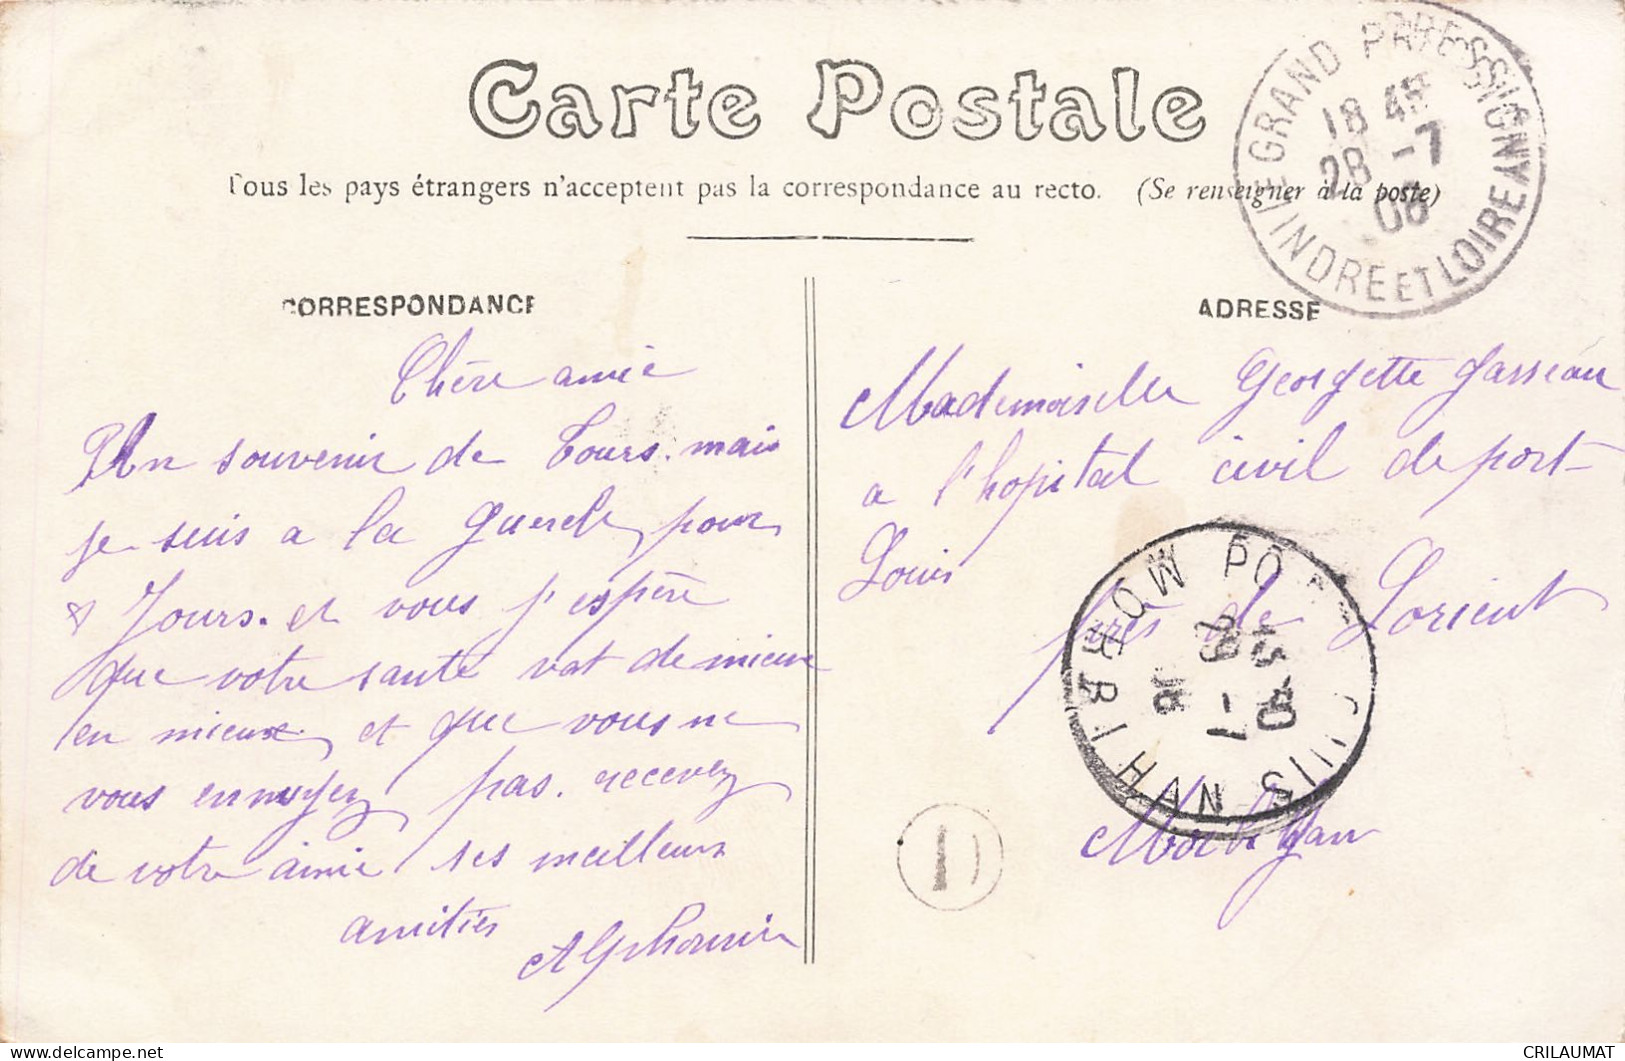 Carte Postale
Tous les pays étrangers n'acceptent pas la correspondance au recto. (Se renseigner à la poste)
LE GRAND PRESSIGNY
18 45
28 -7
08
INDRE ET LOIRE
CORRESPONDANCE
Chère amie
Un souvenir de Tours. mais
je suis a la Guerche pour
8 Jours. et vous j'espère
que votre santé vat de mieux
en mieux et que vous ne
vous ennuyez pas. recevez
de votre amie ses meilleurs
amitiés
Alphonsine
ADRESSE
Mademoiselle Georgette Gasseau
a l'hopital civil de port-
Louis
près de Lorient
Morbihan
PORT LOUIS
MORBIHAN
29 -7
08
CRILAUMAT